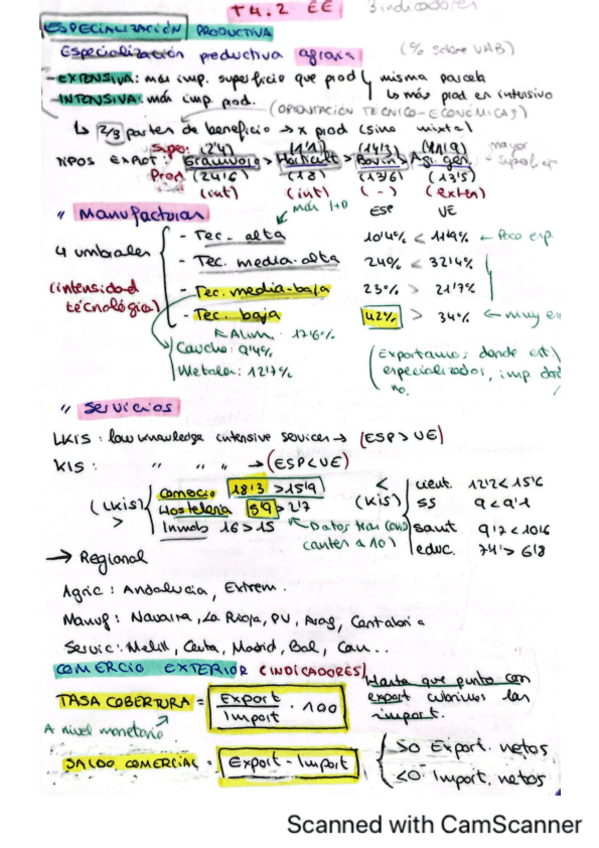 T4.2 EE 3 indicadores
ESPECIALIZACIÓN PRODUCTIVA
Especialización productiva agraria (% sobre VAB)
- EXTENSIVA: más imp. superficie que prod } misma parcela
- INTENSIVA: más imp prod. ↳ más prod en intensivo
(ORIENTACIÓN TÉCNICO-ECONÓMICAS)
↳ 2/3 partes de beneficio → x prod (sino mixta)
Supe: (2'4) (1'1) (14'3) (41'9) mayor
NPOS EXPLOT: Granivoro > Horticult > Bovin > Agr. gen. superficie
Prod (24'6) (18) (13'6) (13'5)
(int) (int) (-) (exten)
" Manufacturas más I+D ESP UE
4 umbrales - Tec. alta 10'4% < 11'9% ← Poco esp.
- Tec. media-alta 24% < 32'4%
(intensidad tecnológica) - Tec. media-baja 23% > 21'7%
- Tec. baja 42% > 34% ← muy
Alim. 17'6%
Caucho: 9'4%
Metales: 12'7%
(Exportamos donde est
especializados, imp don
no.
" Servicios
LKIS: low knowledge intensive sevices → (ESP > UE)
KIS: " " " " → (ESP < UE)
(LKIS) > comercio 18'3 > 15'9 (KIS) < cient. 12'2 < 15'6
Hosteleria 5'9 > 2'7 SS 9 < 9'1
Inmob 16 > 15 sanit 9'7 < 10'6
educ. 7'4 > 6'8
→ Regional
Agric: Andalucía, Extrem.
Manuf: Navarra, La Rioja, PV, Arag, Cantabria
Servic: Melill, Ceuta, Madrid, Bal, Can..
COMERCIO EXTERIOR (INDICADORES)
TASA COBERTURA = Export / Import · 100
Hasta que punto con
export cubrimos las
import.
A nivel monetario
SALDO COMERCIAL = Export - Import
>0 Export. netos
<0 Import. netos
Scanned with CamScanner